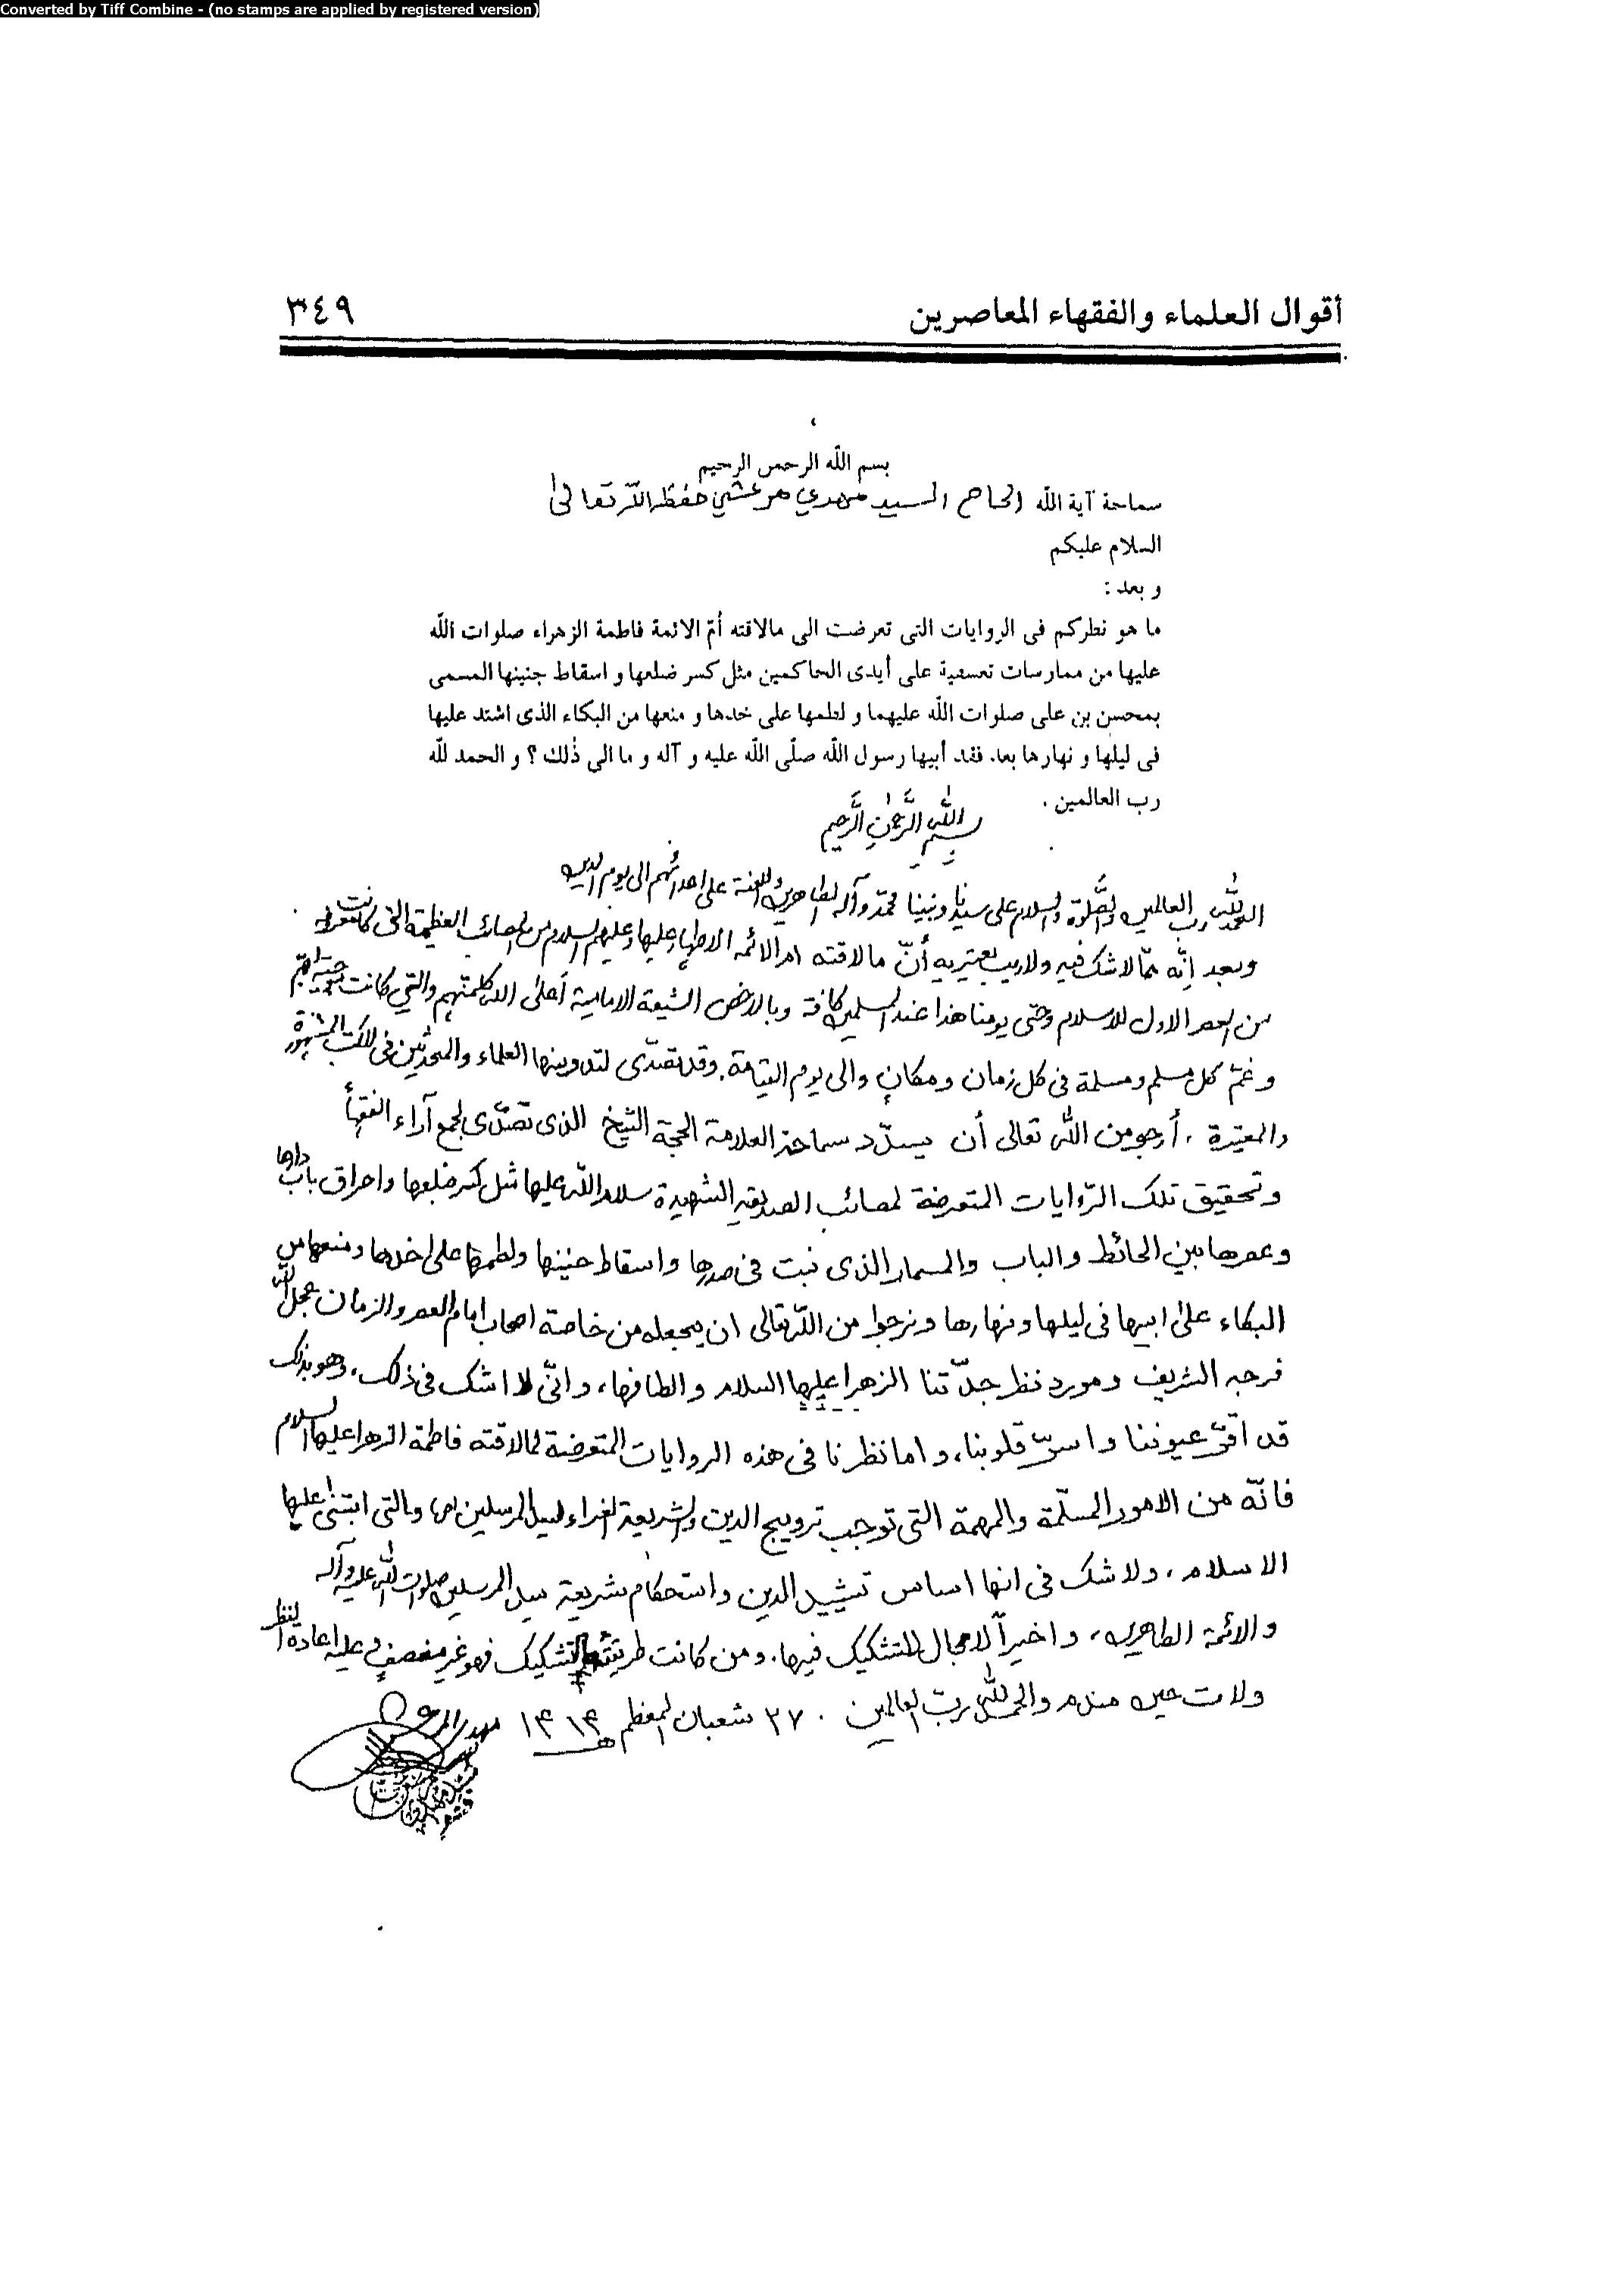 Converted by Tiff Combine - (no stamps are applied by registered version)
أقوال العلماء والفقهاء المعاصرين ٣٤٩
بسم الله الرحمن الرحيم
سماحة آية الله الحاج السيد مهدي مرعشي حفظه الله تعالى
السلام عليكم
و بعد :
ما هو نظركم فى الروايات التى تعرضت الى مالاقته أمّ الائمة فاطمة الزهراء صلوات الله
عليها من ممارسات تعسفية على أيدى الحاكمين مثل كسر ضلعها و اسقاط جنينها المسمى
بمحسن بن على صلوات الله عليهما و لطمها على خدها و منعها من البكاء الذى اشتد عليها
فى ليلها و نهارها بعد فقد أبيها رسول الله صلّى الله عليه و آله و ما الى ذٰلك ؟ و الحمد للّه
رب العالمين .
بسم الله الرحمن الرحيم
الحمد لله رب العالمين والصلوة والسلام على سيدنا ونبينا محمد وآله الطاهرين واللعنة على اعدائهم الى يوم الدين
وبعد إنّه ممّا لاشك فيه ولاريب يعتريه أنّ مالاقته ام الائمه الاطهار عليها وعليهم السلام من المصائب العظيمة التى كانت معروفه
من العصر الاول للاسلام وحتى يومنا هذا عند المسلمين كافة وبالاخص الشيعة الامامية أعلى الله كلمتهم والتي كانت
وغمّ كل مسلم ومسلمة فى كل زمان ومكان والى يوم القيامة. وقد تصدّى لتدوينها العلماء والمحدثين فى الكتب المشهورة
والمعتبرة . أرجو من الله تعالى أن يسدّد سماحة العلامة الحجة الشيخ الذى تصدّى لجمع آراء الفقهأ
وتحقيق تلك الرّوايات المتعرضة لمصائب الصديقه الشهيدة سلام الله عليها مثل كسر ضلعها واحراق باب دارها
وعصرها بين الحائط والباب والمسمار الذى نبت فى صدرها واسقاط جنينها ولطمها على خدها ومنعها من
البكاء علىٰ ابيها فى ليلها ونهارها ونرجوا من الله تعالى ان يجعله من خاصة اصحاب امام العصر والزمان عجل الله
فرجه الشريف ومورد نظر جدّتنا الزهرا عليها السلام والطافها، وانّى لا اشك فى ذلك، وهو بذلك
قد اقرّ عيوننا واسرّ قلوبنا، واما نظرنا فى هذه الروايات المتعرضة لمالاقته فاطمة الزهرا عليها السلام
فانّه من الامور المسلّمة والمهمة التى توجب ترويج الدين والشريعة الغراء لسيد المرسلين (ص) والتى ابتنى عليها
الاسلام، ولاشك فى انها اساس تشييد الدين واستحكام شريعة سيد المرسلين صلوات الله عليه وآله
والائمة الطاهرين، واخيراً لامجال للتشكيك فيها. ومن كانت طريقته التشكيك فهو غير منصفٍ وعليه اعادة النظر
ولات حين مندم والحمد لله رب العالمين . ٢٧ شعبان المعظم ١٤١٤ هـ